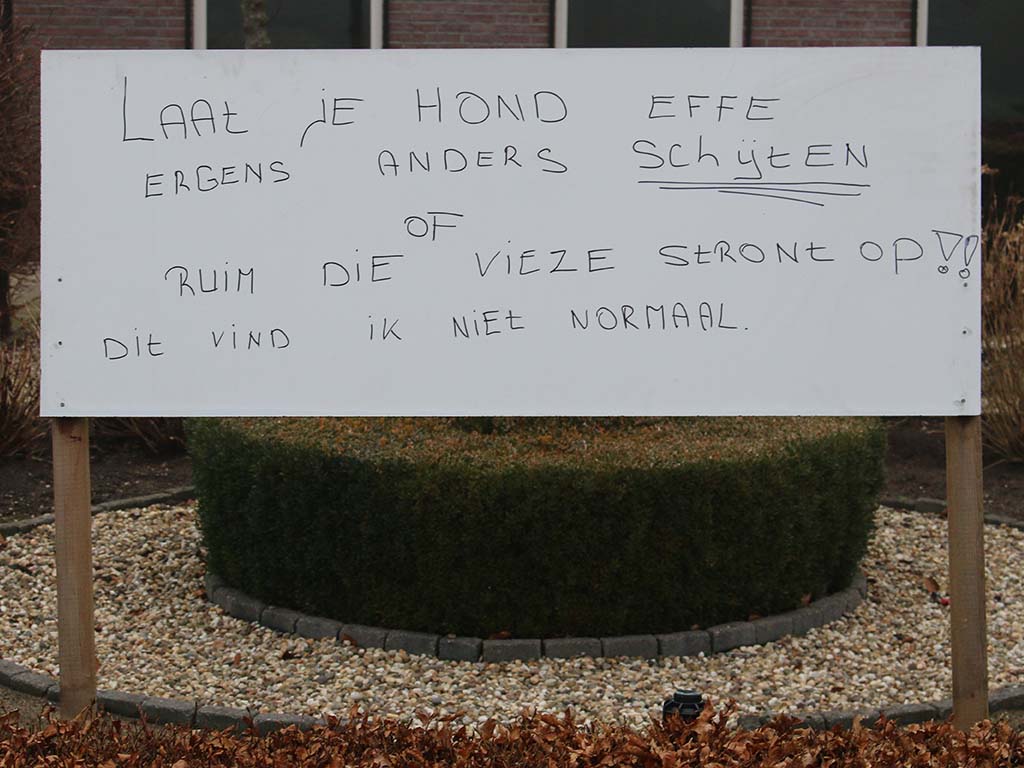 LAAt jE HOND EFFE
ERGENS ANDERS SChijtEN
OF
RUIM DiE ViEZE StRONt OP!!
Dit ViND ik NiEt NORMAAL.